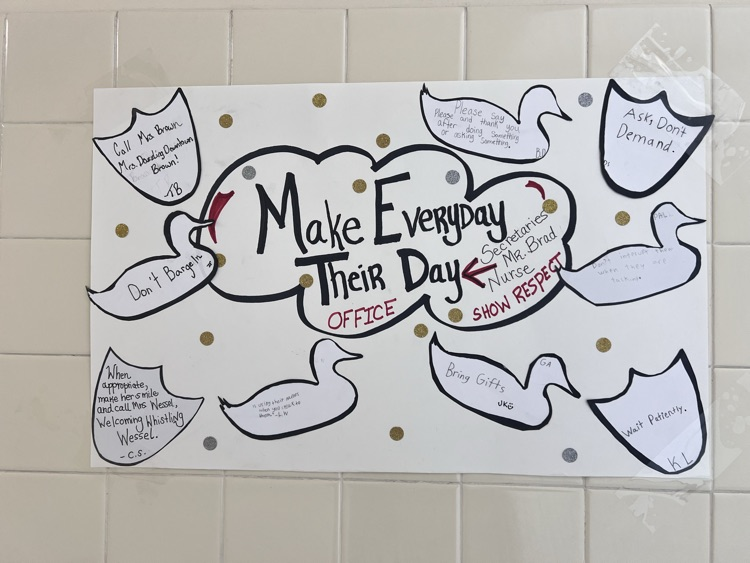 Call Mrs Brown
Mrs. Dazzling Downtown
Brown!
TB
Please say
Please and thank you
after doing something
or asking "something."
B.D
Ask, Don't
Demand.
Make Everyday
Their Day
Secretaries
MR. Brad
Nurse
OFFICE
SHOW RESPECT
Don't Barge In
AL
when they are
When
appropriate,
make her smile
and call Mrs Wessel,
Welcoming Whistling
Wessel.
- C.S.
when you
Bring Gifts
JKG
GA
Wait Patiently.
K L